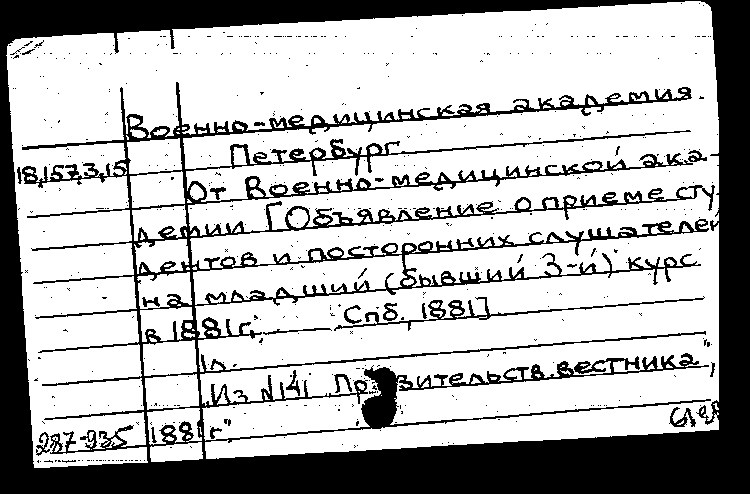 Военно-медицинская академия.
Петербург.
18,157,3,15
От Военно-медицинской ака-
демии [Объявление о приеме сту-
дентов и посторонних слушателей
на младший (бывший 3-й) курс
в 1881 г. Спб., 1881]
1л.
"Из №141 Правительств. вестника",
287-935 1881 г".